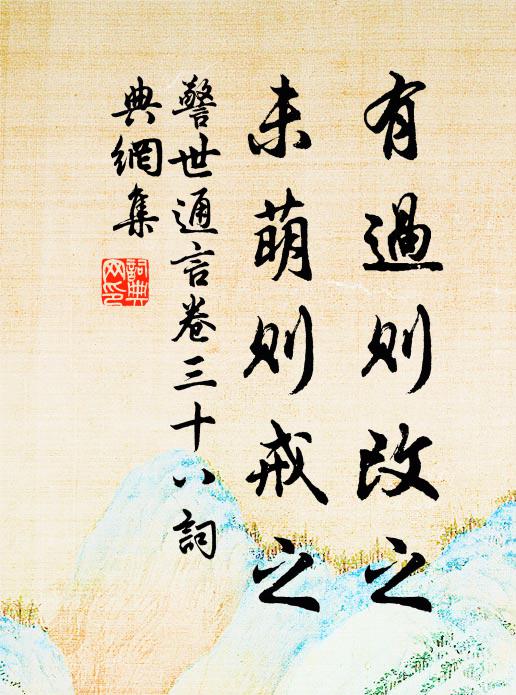 有過則改之
未萌則戒之
警世通言卷三十八詞
典網集
詞典
网印